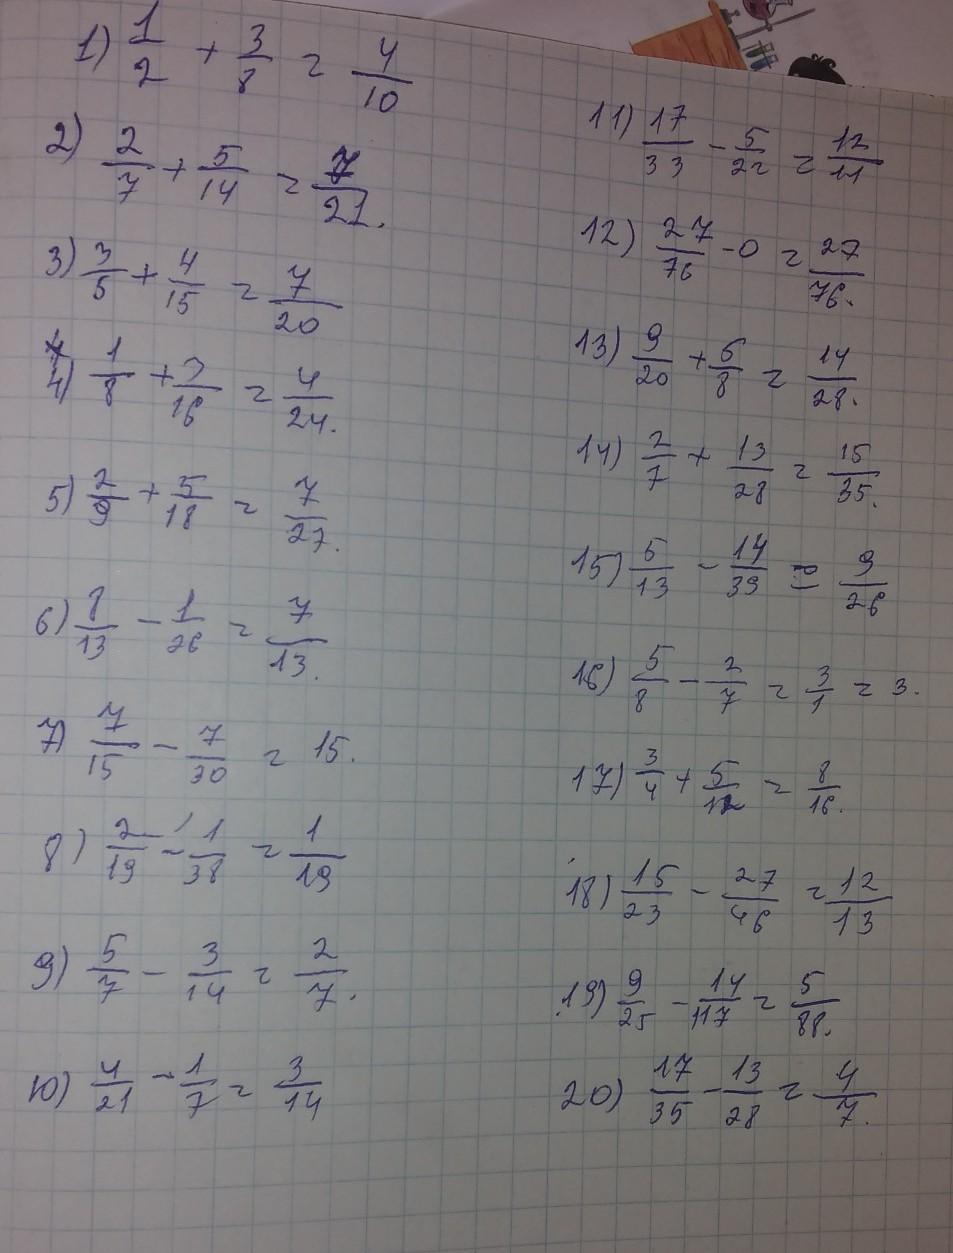 1) 1/2 + 3/8 = 4/10
2) 2/7 + 5/14 = 7/21.
3) 3/5 + 4/15 = 7/20
4) 1/8 + 3/16 = 4/24.
5) 2/9 + 5/18 = 7/27.
6) 8/13 - 1/26 = 7/13.
7) 7/15 - 7/30 = 15.
8) 2/19 - 1/38 = 1/19
9) 5/7 - 3/14 = 2/7.
10) 4/21 - 1/7 = 3/14
11) 17/33 - 5/22 = 12/11
12) 27/76 - 0 = 27/76.
13) 9/20 + 5/8 = 14/28.
14) 2/7 + 13/28 = 15/35.
15) 5/13 - 14/39 = 9/26
16) 5/8 - 2/7 = 3/1 = 3.
17) 3/4 + 5/12 = 8/16.
18) 15/23 - 27/46 = 12/13
19) 9/25 - 14/117 = 5/88.
20) 17/35 - 13/28 = 4/7.